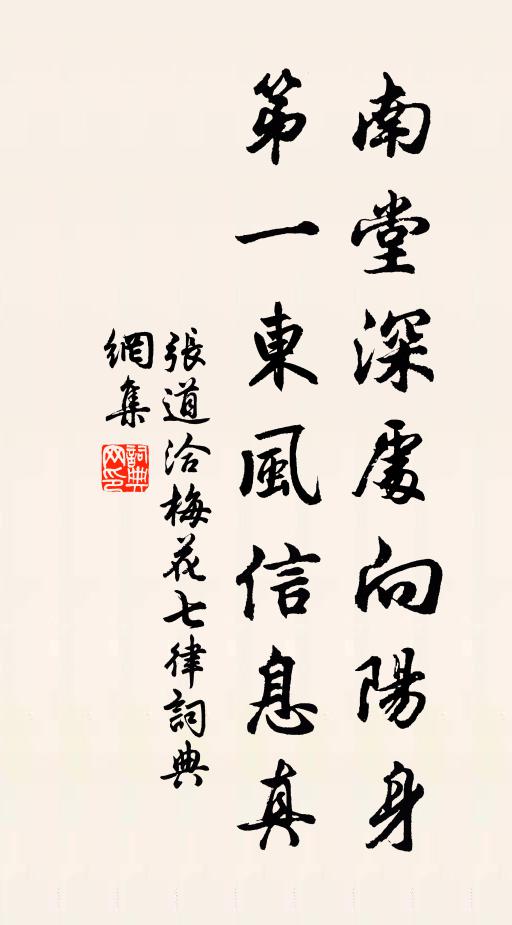 南堂深處向陽身
第一東風信息真
張道洽梅花七律詞典
網集
詞典
网印